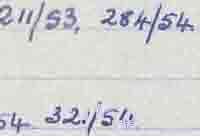 211/53, 284/54.
54. 321/51.